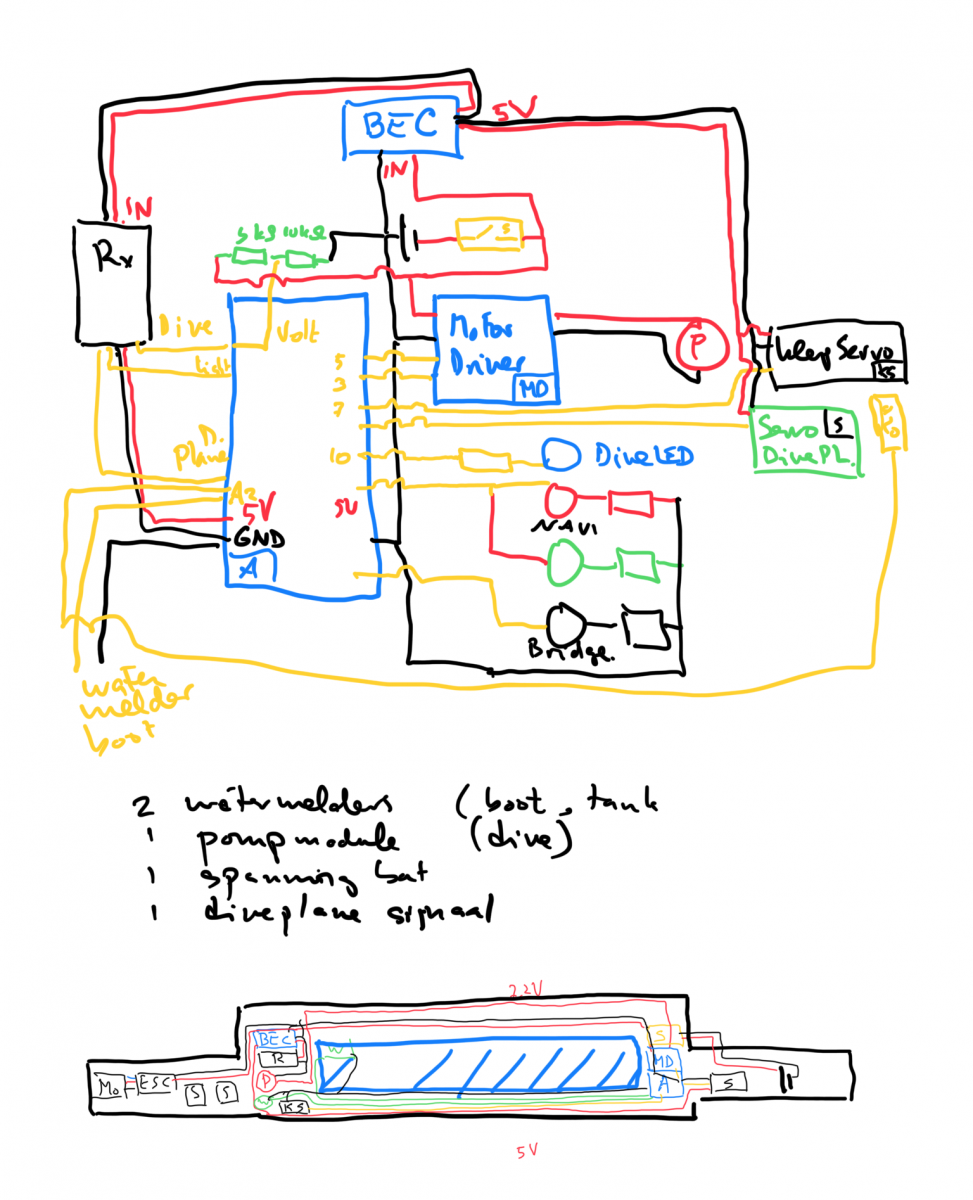 BEC
5V
IN
IN
Rx
5kΩ 10kΩ
S
Dive
Volt
Licht
Motor
Driver
MD
P
Klep Servo
KS
5
3
7
D.
Plane
Servo
S
Dive PL.
10
Dive LED
A2
5V
5V
NAVI
GND
A
Bridge.
water
melder
boot
2 watermelders (boot, tank
1 pompmodule (dive)
1 spanning bat
1 diveplane signaal
2.2V
BEC
S
R
W
MD
Mo
ESC
P
A
S
S
S
KS
5V